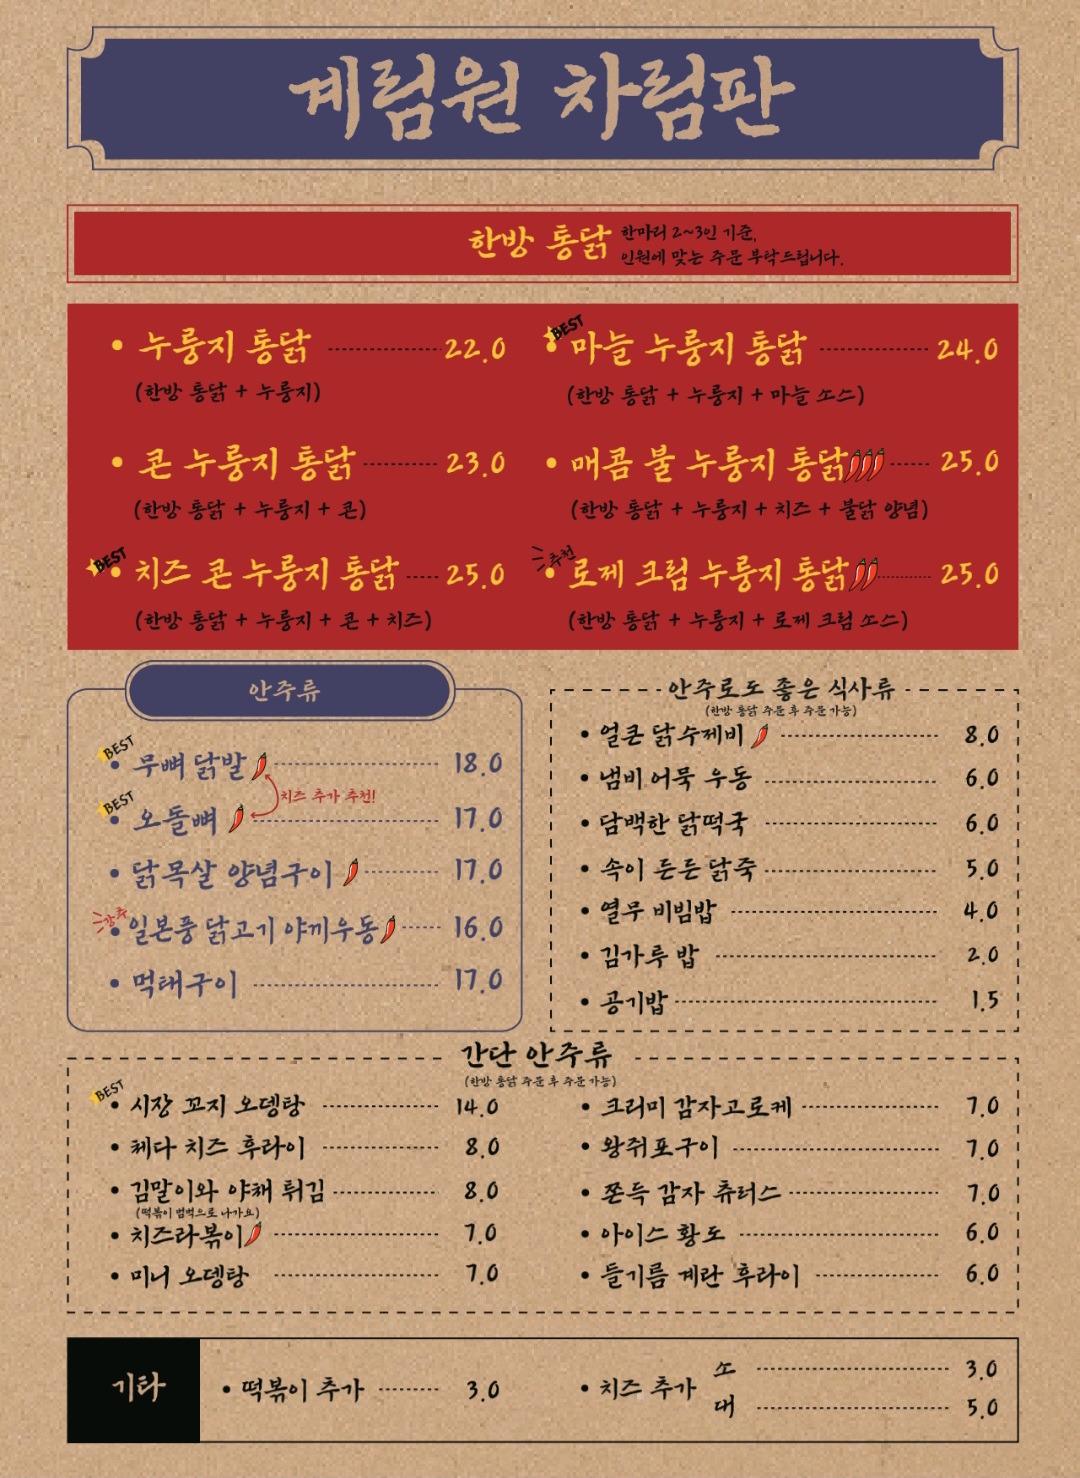 계림원 차림판
한방 통닭 한마리 2~3인 기준,
인원에 맞는 주문 부탁드립니다.
• 누룽지 통닭 22.0
(한방 통닭 + 누룽지)
BEST
• 마늘 누룽지 통닭 24.0
(한방 통닭 + 누룽지 + 마늘 소스)
• 콘 누룽지 통닭 23.0
(한방 통닭 + 누룽지 + 콘)
• 매콤 불 누룽지 통닭 25.0
(한방 통닭 + 누룽지 + 치즈 + 불닭 양념)
BEST
• 치즈 콘 누룽지 통닭 25.0
(한방 통닭 + 누룽지 + 콘 + 치즈)
추천
• 로제 크림 누룽지 통닭 25.0
(한방 통닭 + 누룽지 + 로제 크림 소스)
안주류
BEST
• 무뼈 닭발 18.0
치즈 추가 추천!
BEST
• 오돌뼈 17.0
• 닭목살 양념구이 17.0
강추
• 일본풍 닭고기 야끼우동 16.0
• 먹태구이 17.0
안주로도 좋은 식사류
(한방 통닭 주문 후 주문 가능)
• 얼큰 닭수제비 8.0
• 냄비 어묵 우동 6.0
• 담백한 닭떡국 6.0
• 속이 든든 닭죽 5.0
• 열무 비빔밥 4.0
• 김가루 밥 2.0
• 공기밥 1.5
간단 안주류
(한방 통닭 주문 후 주문 가능)
BEST
• 시장 꼬지 오뎅탕 14.0
• 체다 치즈 후라이 8.0
• 김말이와 야채 튀김 8.0
(떡볶이 범벅으로 나가요)
• 치즈라볶이 7.0
• 미니 오뎅탕 7.0
• 크러미 감자고로케 7.0
• 왕쥐포구이 7.0
• 쫀득 감자 츄러스 7.0
• 아이스 황도 6.0
• 들기름 계란 후라이 6.0
기타
• 떡볶이 추가 3.0
• 치즈 추가
소 3.0
대 5.0